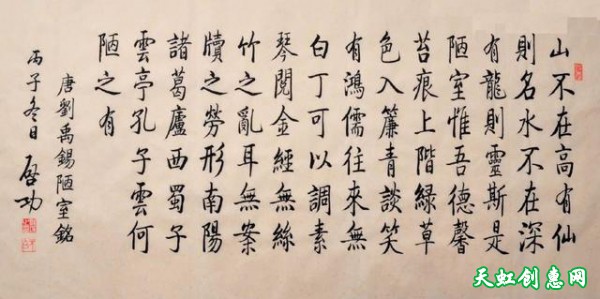 山不在高有仙
則名水不在深
有龍則靈斯是
陋室惟吾德馨
苔痕上階綠草
色入簾青談笑
有鴻儒往來無
白丁可以調素
琴閱金經無絲
竹之亂耳無案
牘之勞形南陽
諸葛廬西蜀子
雲亭孔子雲何
陋之有
唐劉禹錫陋室銘
丙子冬日啓功
天虹创惠网